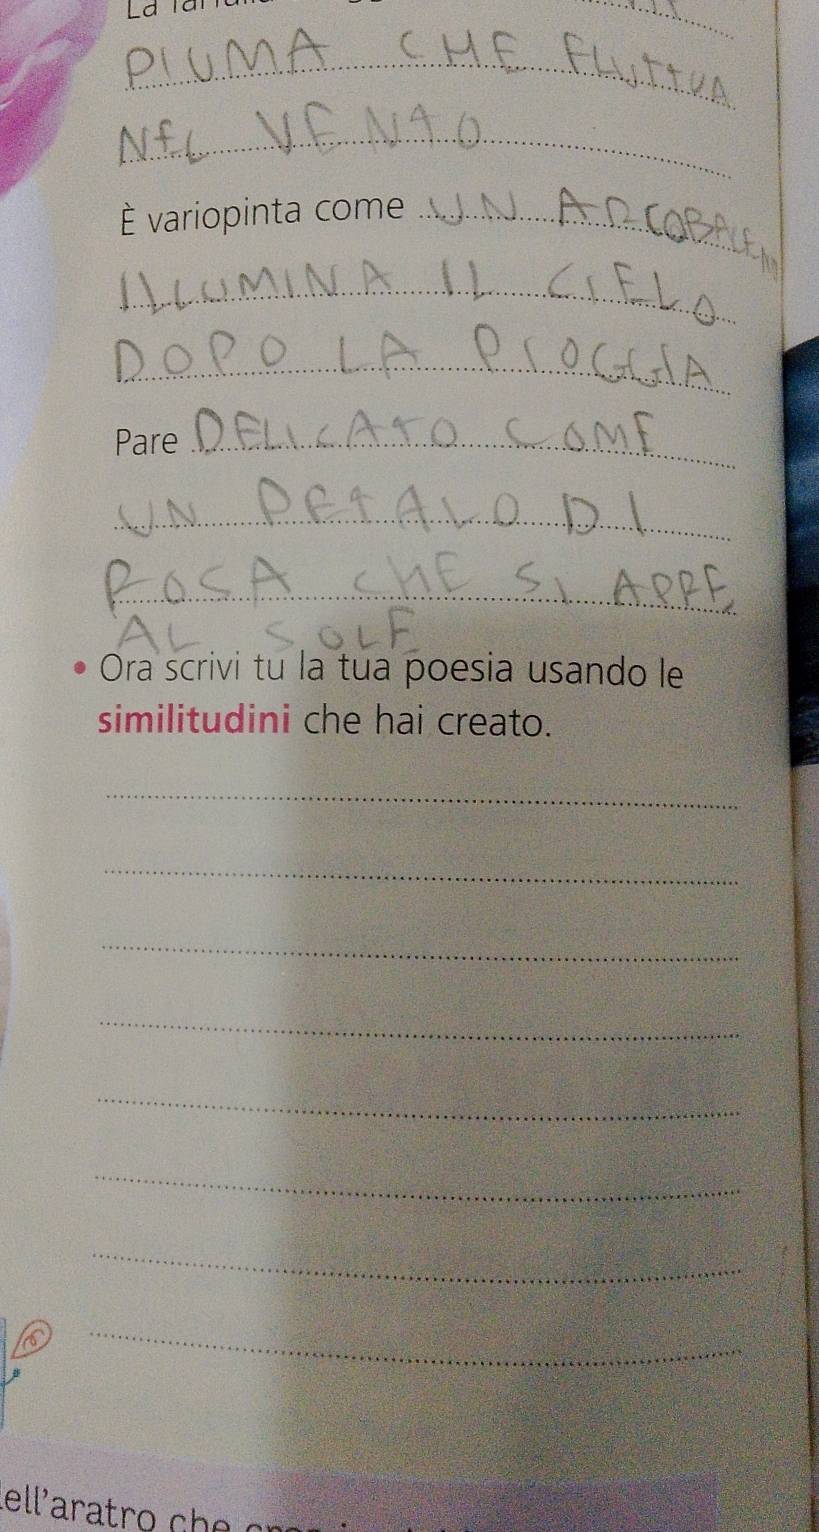 La
PIUMA CHE FLUTTUA
NEL VENTO
È variopinta come UN ARCOBALENO
ILLUMINA IL CIELO
DOPO LA PIOGGIA
Pare DELICATO COME
UN PETALO DI
ROSA CHE SI APRE
AL SOLE
• Ora scrivi tu la tua poesia usando le
similitudini che hai creato.
dell'aratro che